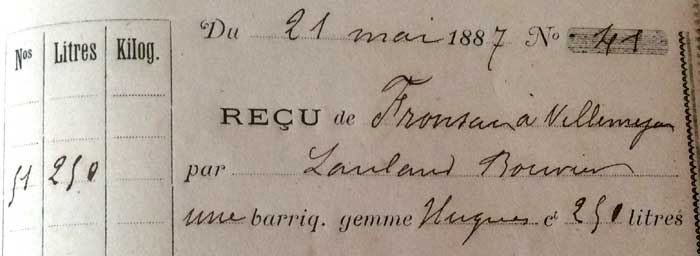 Nos Litres Kilog.
Du 21 mai 1887 No 41
REÇU de Fronsac à Villemeja
51 250
par Lauland Bouvier
une barriq. gemme Hugues ct 250 litres